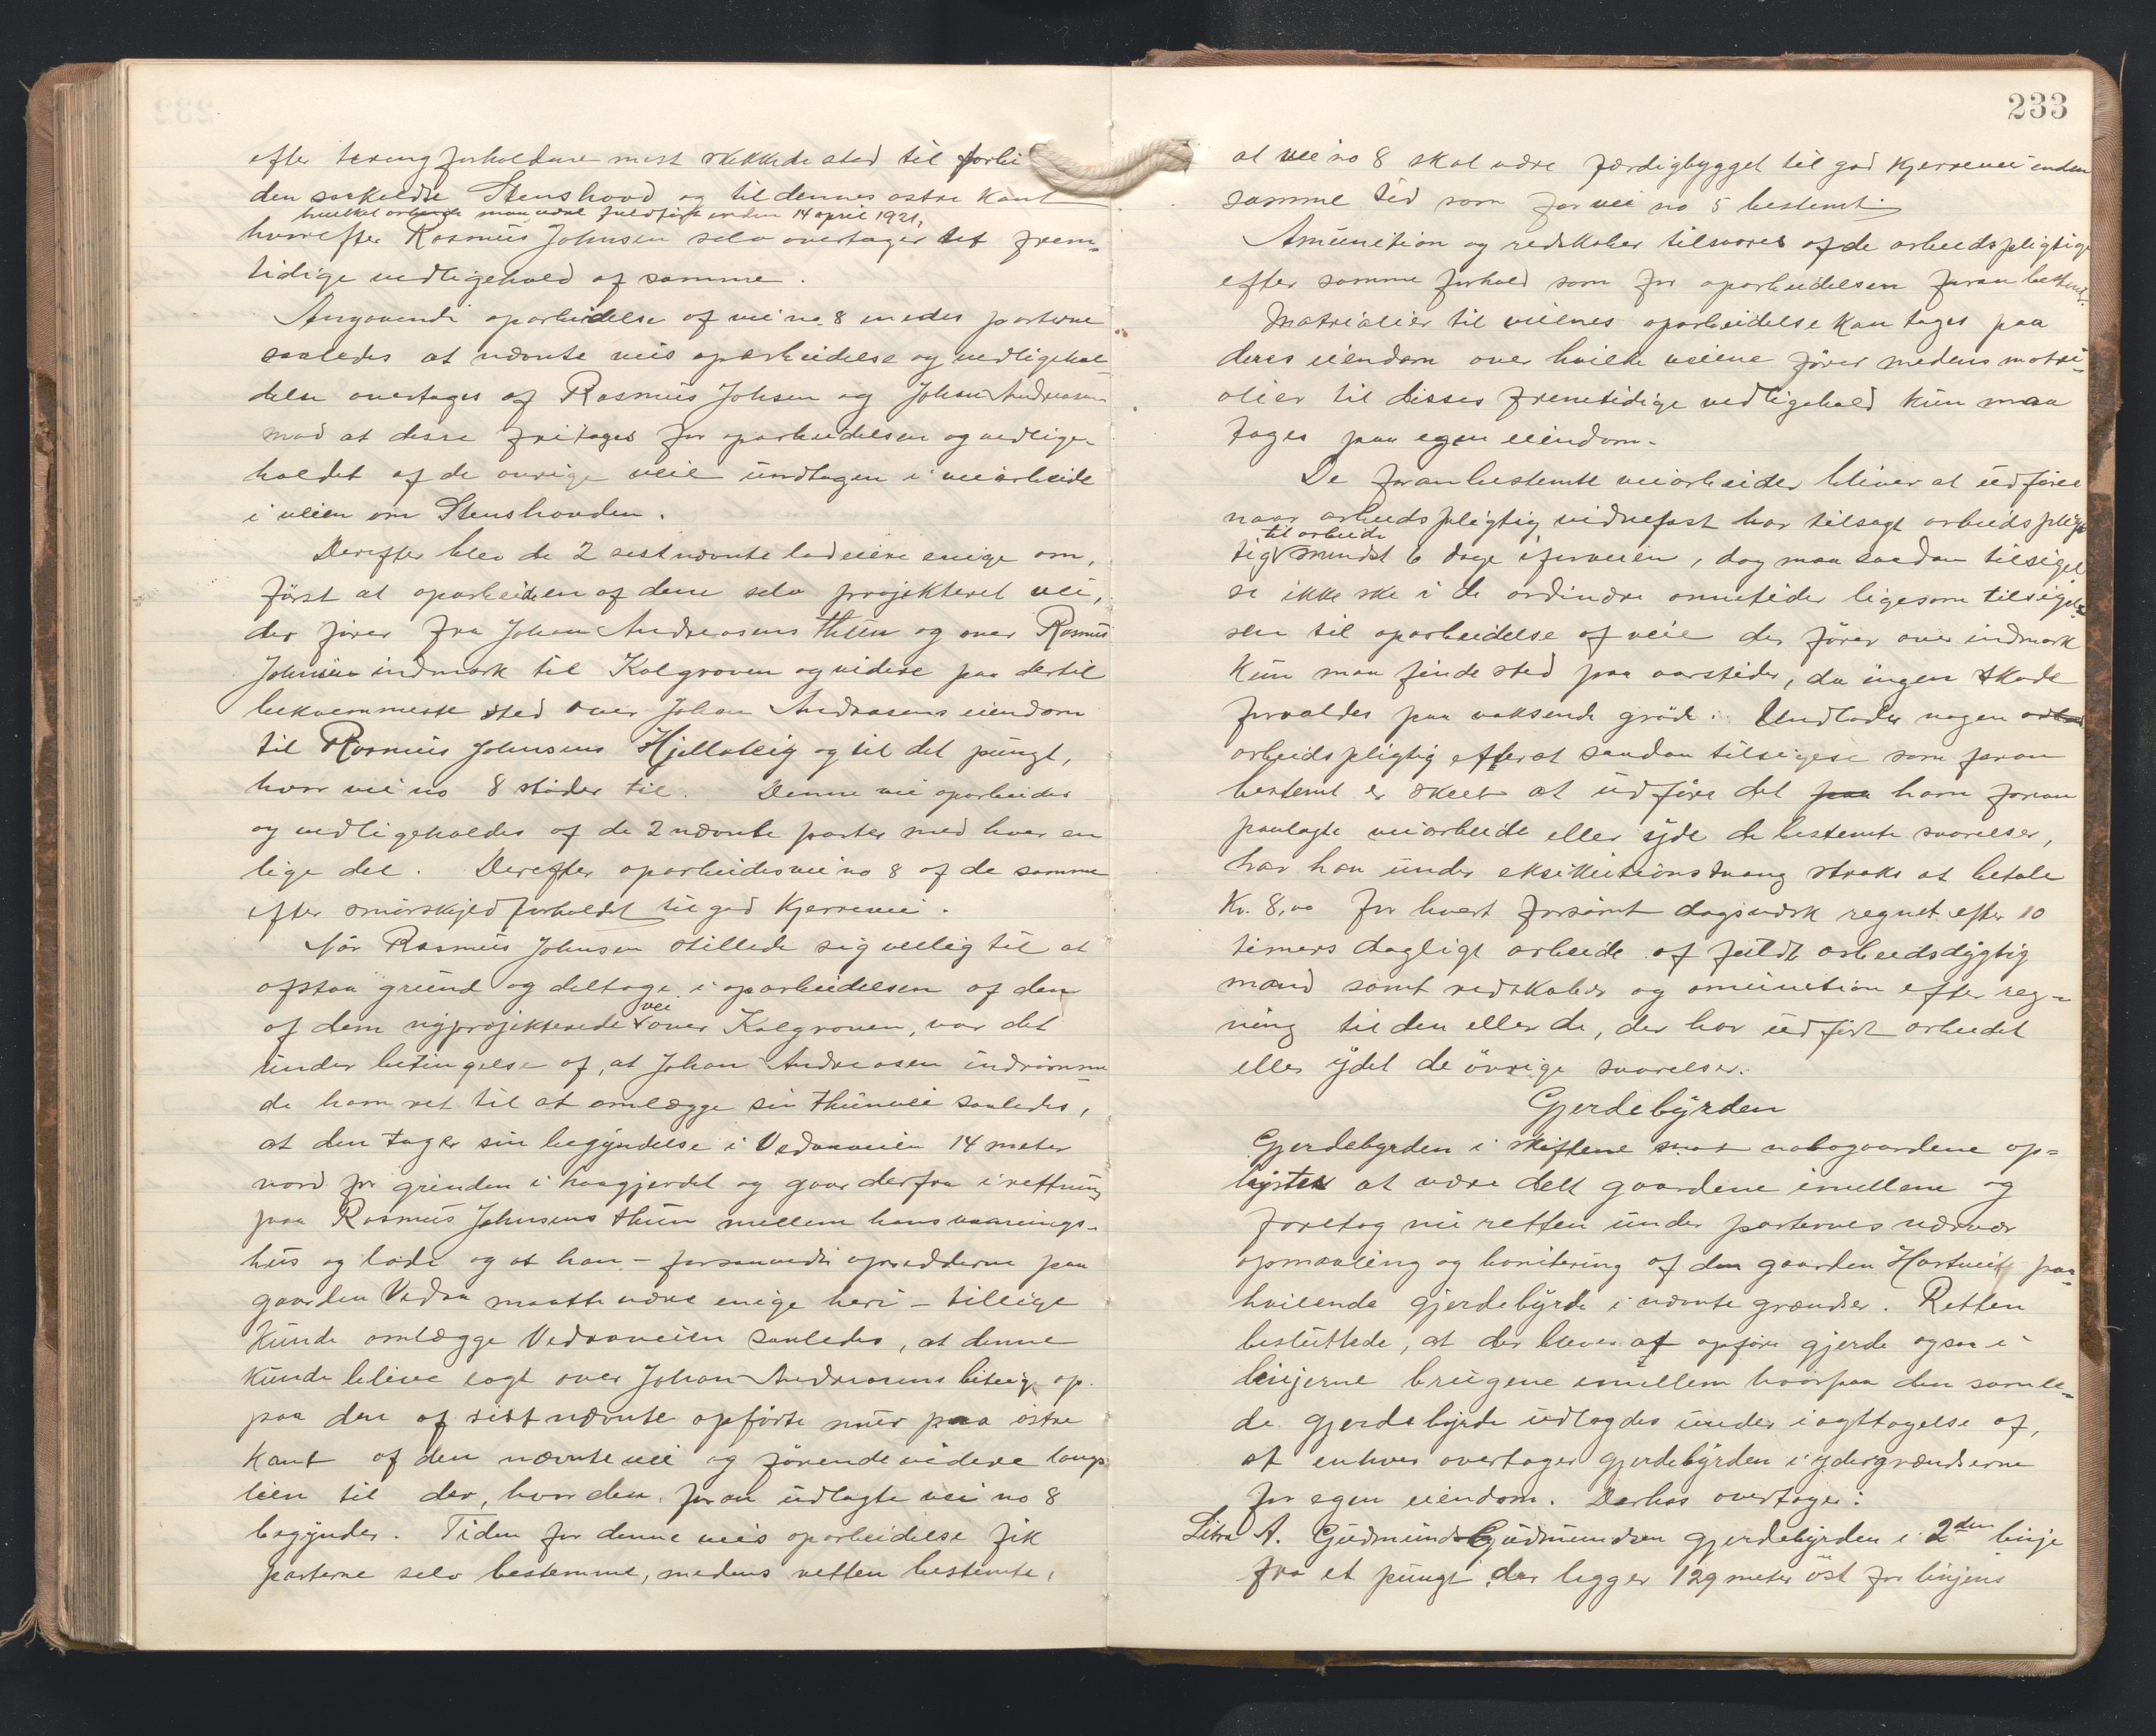 efter terengforholdene mest skikkede sted til forbi
den saakaldte Stenshovd og til dennes østre kant
hvilket arbeide maa være fuldført inden 14 april 1921,
hvorefter Rasmus Johnsen selv overtager det frem=
tidige vedligehold af samme.
Angaaende oparbeidelse af vei no. 8 enedes parterne
saaledes at nævnte veis oparbeidelse og vedligehol
delse overtages af Rasmus Johsen og Johan Andreasen
mod at disse fritages for oparbeidelsen og vedlige-
holdet af de øvrige veie undtagen i veiarbeide
i veien om Stenshovden.
Derefter blev de 2 sidstnævnte lodeiere enige om,
först at oparbeiden af dem selv projekteret vei,
der fører fra Johan Andreasens thun og over Rasmus
Johnsen indmark til Kolgroven og videre paa dertil
bekvemmeste sted over Johan Andreasens eiendom
til Rasmus Johnsens Hjellateig og til det pungt,
hvor vei no 8 støder til. Denne vei oparbeides
og vedligeholdes af de 2 nævnte parter med hver en
lige del. Derefter oparbeides vei no 8 af de samme
efter smørskyldforholdet til god kjerrevei.
Når Rasmus Johnsen stillede sig velig til at
afstaa grund og deltage i oparbeidelsen af den
vei
af dem nyprojekterede over Kolgroven, var det
under betingelse af, at Johan Andreasen indrømme
de ham ret til at omlægge sin thunvei saaledes,
at den tager sin begyndelse i Vedaaveien 14 meter
nord for grinden i haagjerdet og gaar derfra i retning
paa Rasmus Johnsens thun mellem hans vaanings-
hus og lade og at han – forsaavidt opsidderne paa
gaarden Vedaa maatte være enige heri – tillige
kunde omlægge Vedaaveien saaledes, at denne
kunde blive lagt over Johan Andreasens biteig op
paa den af sidstnævnte opførte mur paa østre
kant af den nævnte vei og førende videre langs
lien til der, hvor den foran udlagte vei no 8
begynder. Tiden for denne veis oparbeidelse fik
parterne selv bestemme, medens retten bestemte,
233
at vei no 8 skal være færdigbygget til god kjerrevei inden
samme tid som for vei no 5 bestemt.
Amunition og redskaber tilsvares af de arbeidspligtige
efter samme forhold som for oparbeidelsen foran bestemt.
Matrialier til veienes oparbeidelse kan tages paa
deres eiendom over hvilke veiene fører medens matri=
alier til disses fremtidige vedligehold kun maa
tages paa egen eiendom.
De foranbestemte veiarbeider bliver at udføre
naar arbeidspligtig vidnefast har tilsagt arbeidsplig
til arbeide
tig mindst 6 dage i forveien, dog maa saadan tilsigel
se ikke ske i de ordinære onnetider ligesom tilsigel=
sen til oparbeidelse af veie der fører over indmark
kun maa finde sted paa aarstider, da ingen skade
forvoldes paa voksende grøde. Undlader nogen
arbeidspligtig efterat saadan tilsigelse som foran
bestemt er skeet at udføre det paa ham foran
paalagte veiarbeide eller yde de bestemte svarelser,
har han under eksikutionstvang straks at betale
Kr. 8,00 for hvert forsømt dagsverk regnet efter 10
timers dagligt arbeide af fuldt arbeidsdygtig
mand samt redskaber og amunition efter reg=
ning til den eller de, der har udført arbeidet
eller ydet de øvrige svarelser.
Gjerdebyrden
Gjerdebyrden i skiftene mod nabogaardene op=
lystes at være delt gaardene imellem og
foretog nu retten under parternes nærvær
opmaaling og bonitering af den gaarden Hartveit paa=
hvilende gjerdebyrde i nævnte grændser. Retten
besluttede, at der blev at opføre gjerde ogsaa i
linjerne brugene imellem hvorpaa den samle=
de gjerdebyrde udlagdes under iagttagelse af,
at enhver overtager gjerdebyrden i ydergrændserne
for egen eiendom. Derhos overtager:
Litra A. Gudmund Gudmundsen gjerdebyrden i 2den linje
fra et pungt der ligger 129 meter öst for linjens